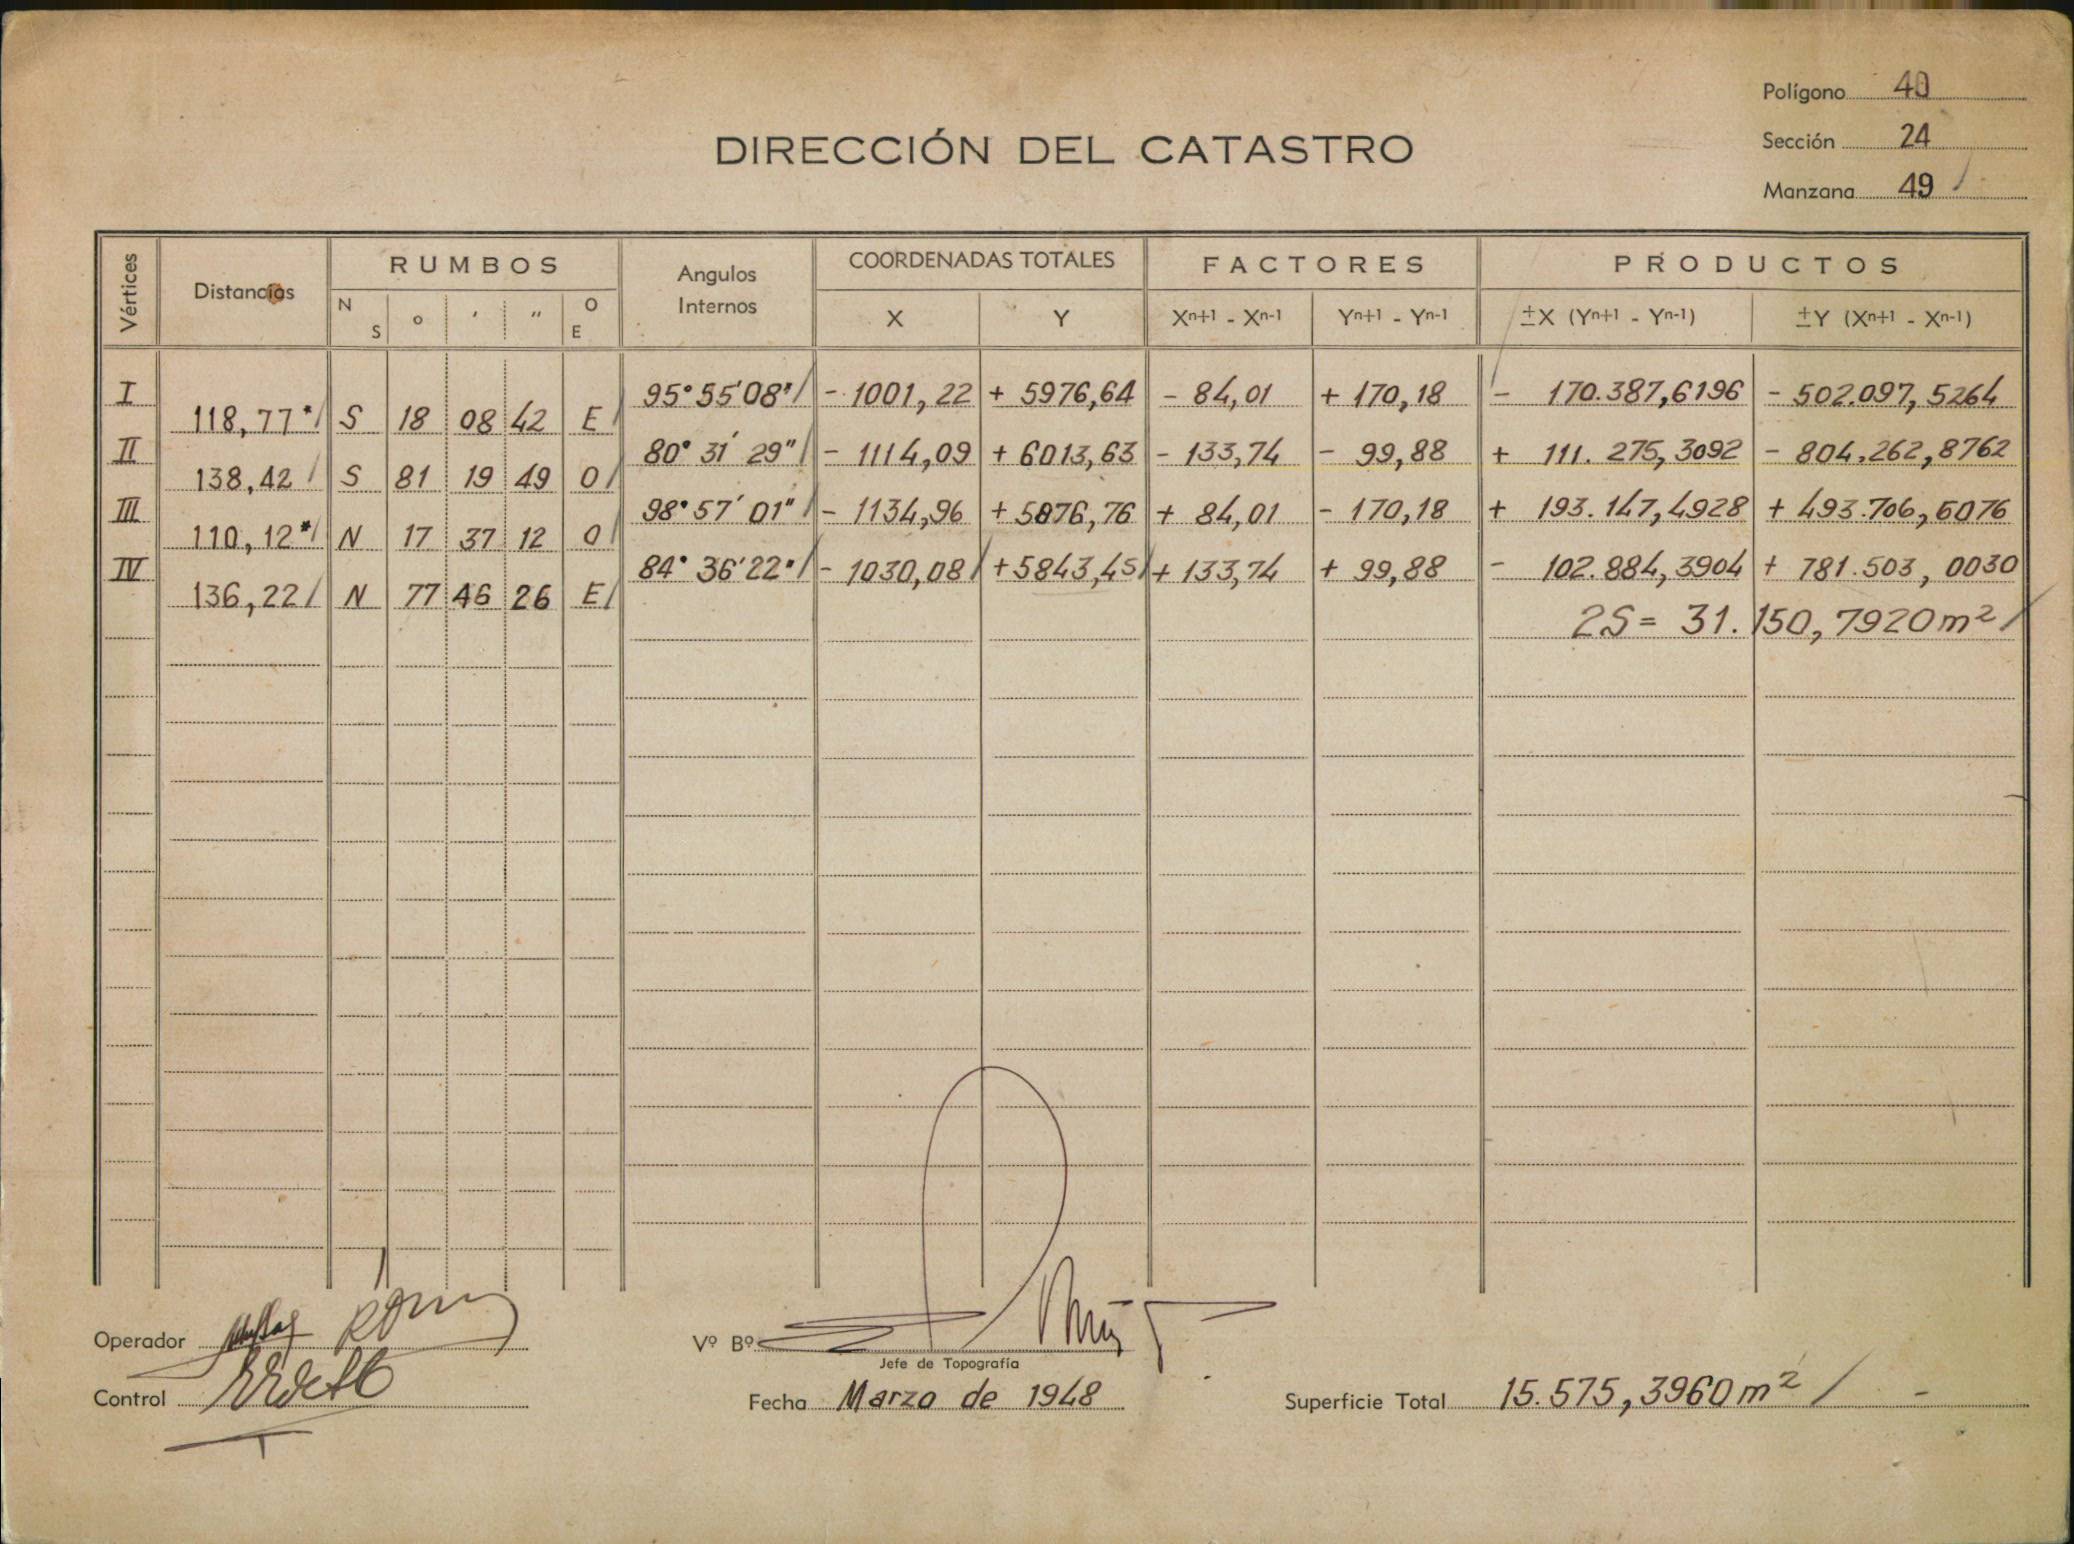 Polígono 40
DIRECCIÓN DEL CATASTRO
Sección 24
Manzana 49 /
Vértices Distancias RUMBOS Angulos Internos COORDENADAS TOTALES FACTORES PRODUCTOS
N S ° ' " O E X Y Xⁿ⁺¹ - Xⁿ⁻¹ Yⁿ⁺¹ - Yⁿ⁻¹ ±X (Yⁿ⁺¹ - Yⁿ⁻¹) ±Y (Xⁿ⁺¹ - Xⁿ⁻¹)
I 95° 55' 08" / - 1001,22 + 5976,64 - 84,01 + 170,18 - 170.387,6196 - 502.097,5264
118,77* / S 18 08 42 E /
II 80° 31' 29" / - 1114,09 + 6013,63 - 133,74 - 99,88 + 111.275,3092 - 804.262,8762
138,42 / S 81 19 49 O /
III 98° 57' 01" / - 1134,96 + 5876,76 + 84,01 - 170,18 + 193.147,4928 + 493.706,6076
110,12* / N 17 37 12 O /
IV 84° 36' 22" / - 1030,08 / + 5843,45 / + 133,74 + 99,88 - 102.884,3904 + 781.503,0030
136,22 / N 77 46 26 E /
2S = 31.150,7920 m² /
Operador
Vº Bº
Jefe de Topografía
Control
Fecha Marzo de 1948
Superficie Total 15.575,3960 m² / -